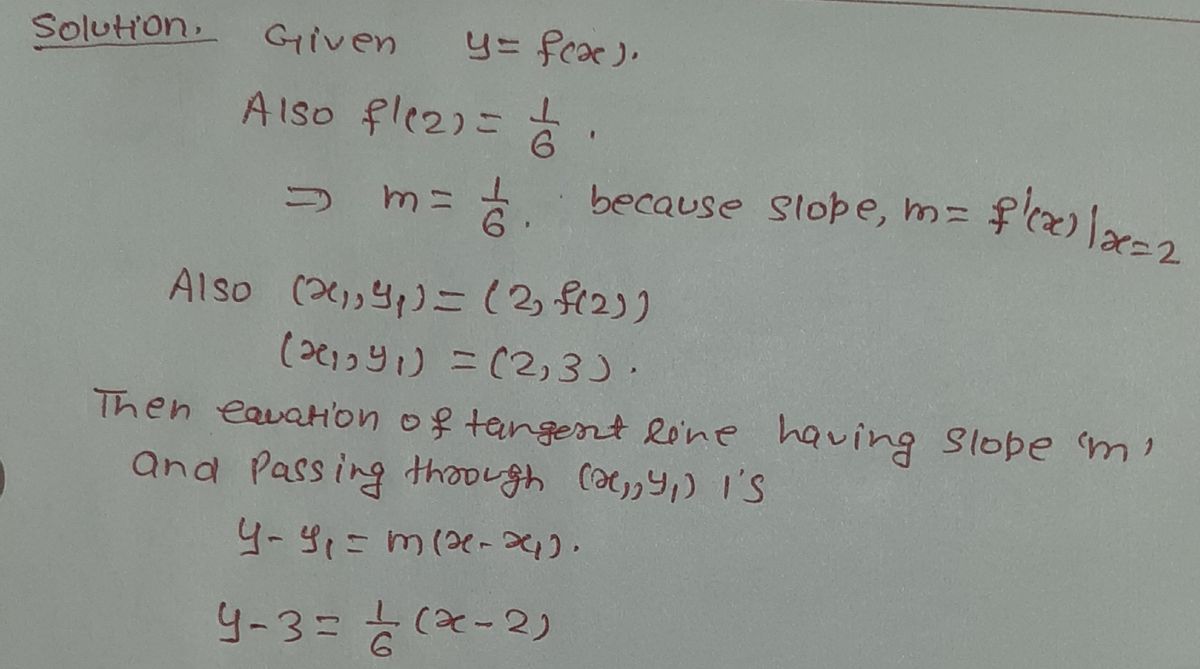 Solution. Given y = f(x).
Also f'(2) = 1/6 .
⇒ m = 1/6 . because slope, m = f'(x)|x=2
Also (x₁, y₁) = (2, f(2))
(x₁, y₁) = (2, 3).
Then equation of tangent line having slope 'm'
and Passing through (x₁, y₁) is
y - y₁ = m(x - x₁).
y - 3 = 1/6 (x - 2)